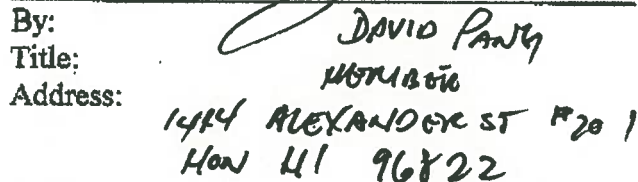 By: DAVID PANG
Title: MEMBER
Address:
1414 ALEXANDER ST #201
HON HI 96822